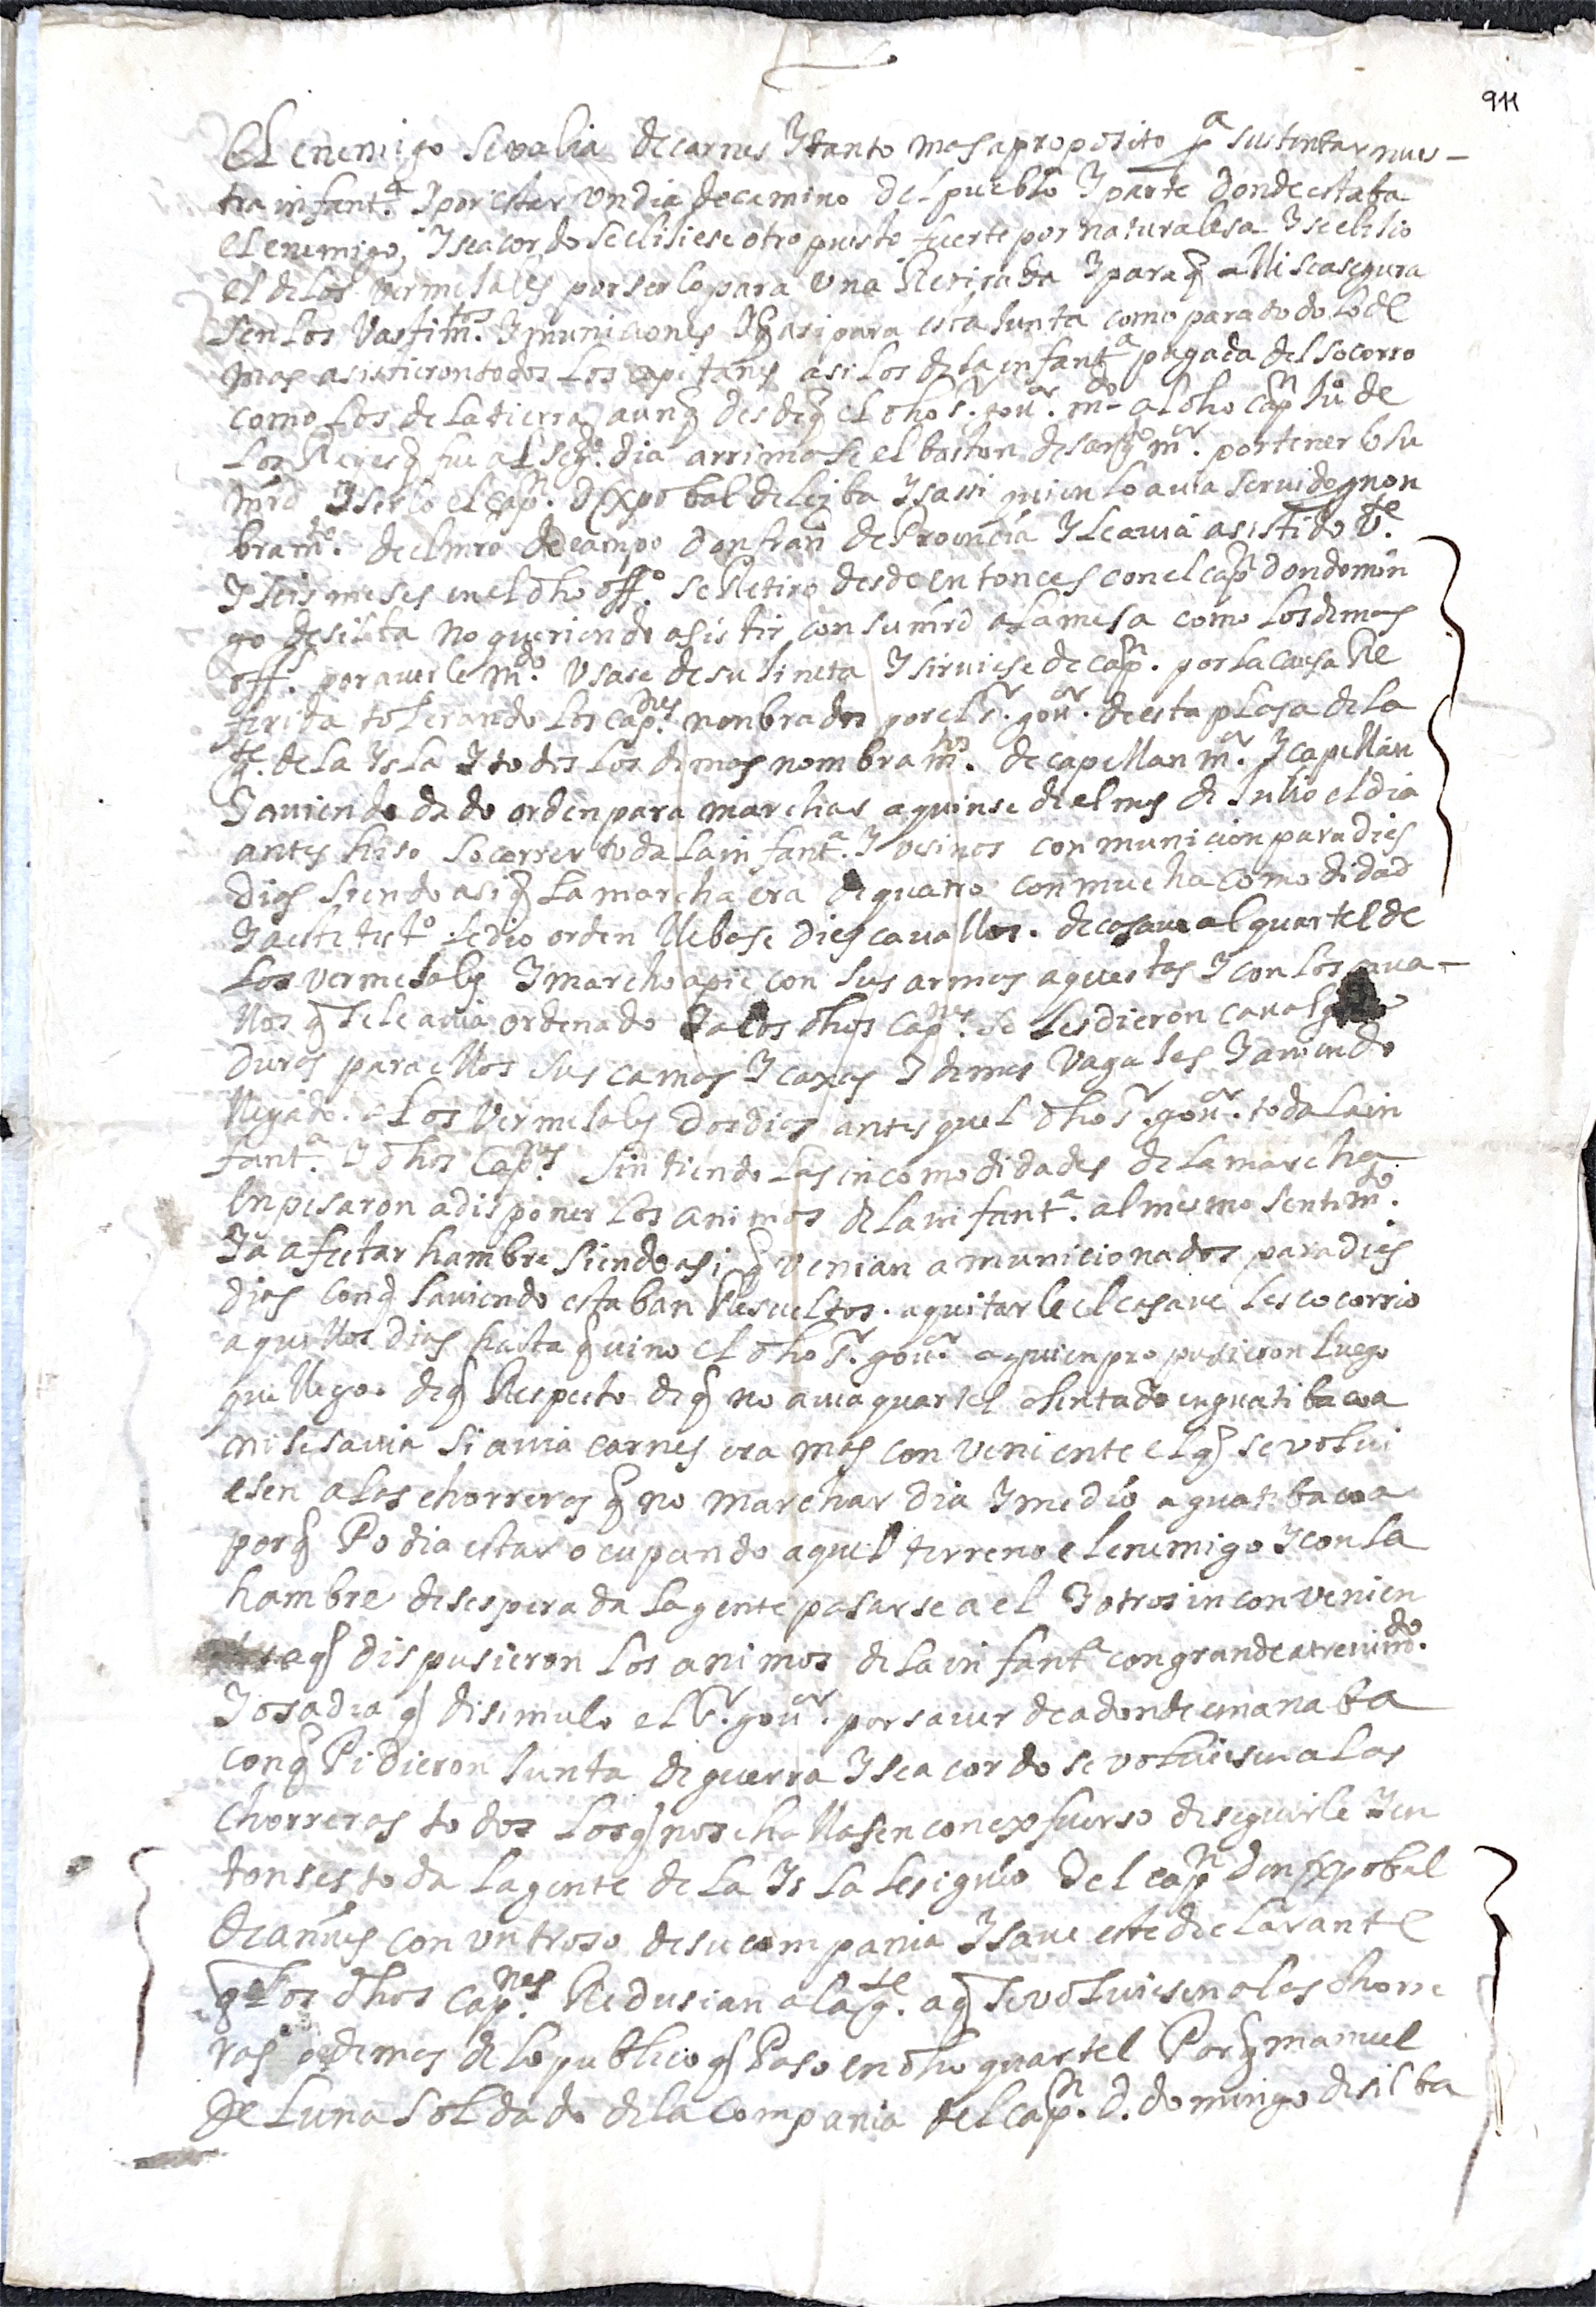 911
El enemigo se valia de carnes Y tanto mas a proposito pª sustentar nues-
tra infantª. Y por estar un dia de camino del pueblo Y parte donde estaba
el enemigo, Y se acordo se elisiese otro puesto fuerte por naturalesa Y se elisio
el de los vermejales por serlo para una Retirada Y para q alli se asegura
sen los Vastimtos. Y municiones Y q asi para esta Junta como para todo lo de
mas asistieron todos los capitanes asi los de la infantª pagada del socorro
como los de la tierra, aunq desde q el dho sr. gour. mdo al dho capn Ju de
los Reyes q fue al segdo. dia arrimase el baston de sargto mor. por tener lo su
mrd Y serlo el capn. D Xpobal de leiba Y sassi quien lo avia servido y non
bramto. de el mro de campo Don franco de Provincia Y le avia asistido Ve.
Y seis meses en el dho offo. se Retiro desde entonces con el capn don domin
go de silba no queriendo asistir con su mrd a la mesa como los demas
offs. por averle mdo. Usase de su Jineta Y sirviese de capn. por la causa Re
ferida tolerando los capnes. nonbrados por el sr. gour. de esta plasa de la
gte. de la Ysla Y todos los demas nombramtos. de capellan mor. Y capellan
Y aviendo dado orden para marchar a quinse de el mes de Julio el dia
antes hiso socorrer toda la infantª. Y vesinos con municion para dies
dias siendo asi q la marcha era de quatro con mucha comodidad
Y a este testo. se dio orden llebase dies cavallos. de casave al quartel de
los vermejales Y marcho a pie con sus armas a questas Y con los cava-
llos q se le avia ordenado Y a los dhos capnes. se les dieron cavalga
duras para ellos sus camas Y caxas Y demas vagajes Y aviendo
llegado. a los Vermejales dos dias antes quel dho sr. gour. toda la in
fantª. Y dhos capnes. sintiendo las incomodidades de la marcha
enpesaron a disponer los animos de la infantª. al mesmo sentimto.
Y a afectar hambre siendo asi q venian amunicionados para dies
dias conq saviendo estaban Resueltos. a quitarle el casave les cocorrio
aquellos dias hasta q vino el dho sr. gour. a quien propusieron luego
que llego. deq Respecto deq no avia quartel asentado en guatibacoa
ni se savia si avia carnes era mas conveniente el q se volui
esen a las chorreras q no marchar dia Y medio a guatibacoa
porq Podia estar ocupando aquel terreno el enemigo Y con la
hambre desesperada la gente pasarse a el Y otros inconvenien
tes aq dispusieron los animos de la infantª con grande atrevimto.
Y osadia q disimulo el sr. gour. por saver de adonde emanaba
conq Pidieron Junta de guerra Y se acordo se voluiesen a las
chorreras todos los q nos hallasen con exfuerso de seguirle Y en
tonses toda la gente de la Ysla le siguio Y el capn don xpobal
de anues con un troso de su compania Y save este declarante
q los dhos capnes. Redusian a la gte. aq se voluiesen a las chorre
ras ademas de lo publico q Paso en dho quartel Porq manuel
de Luna soldado de la compania del capn. D. domingo de silba